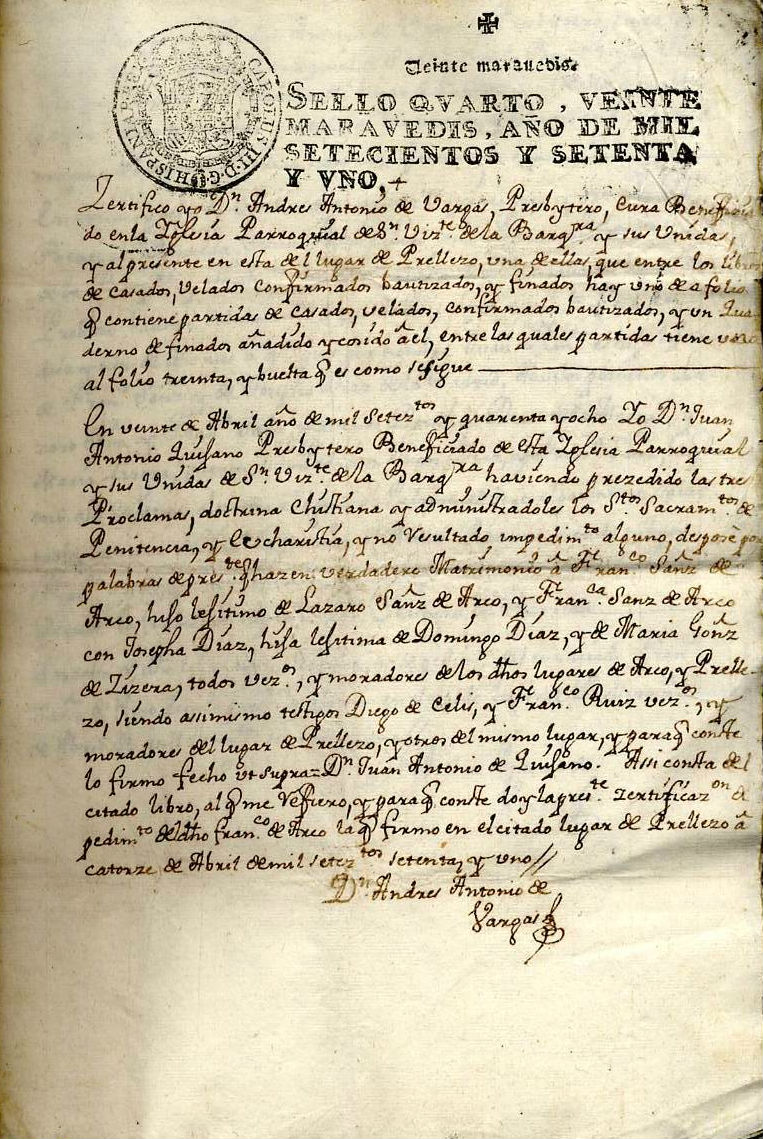 ✠
Veinte marauedis.
CAROLUS III D. G. HISPANIAR REX
SELLO QVARTO, VEINTE
MARAVEDIS, AÑO DE MIL
SETECIENTOS Y SETENTA
Y VNO,
Zertifico yo Dn. Andres Antonio de Vargas, Presbytero, Cura Beneficia
do en la Yglesia Parroquial de Sn. Vizte. de la Barqra. y sus Unidas,
y al presente en esta del lugar de Prellezo, una de ellas, que entre los libros
de casados, velados confirmados bautizados, y finados hay uno de a folio
q contiene partidas de casados, velados, confirmados bautizados, y un Qua
derno de finados añadido y cosido â el, entre las quales partidas tiene una
al folio treinta, y buelta q es como se sigue
En veinte de Abril año de mil seteztos y quarenta y ocho Yo Dn. Juan
Antonio Quijano Presbytero Beneficiado de esta Yglesia Parroquial
y sus Unidas de Sn. Vizte. de la Barqra haviendo prezedido las tres
Proclamas, doctrina Christiana y administradoles los Stos. Sacramtos. de
Penitencia, y Eucharistia, y no Resultado impedimto alguno, desposè por
palabras de preste. q hazen verdadero Matrimonio â Franco Sanz de
Arco, hijo lejitimo de Lazaro Sanz de Arco, y Franca. Sanz de Arco
con Josepha Diaz, hija lejitima de Domingo Diaz, y de Maria Gonz
de Lizera, todos vezos, y moradores de los dhos lugares de Arco, y Prelle-
zo, siendo assimismo testigos Diego de Celis, y Franco Ruiz vezos, y
moradores del lugar de Prellezo, y otros del mismo lugar, y para q conste
lo firmo fecho ut supra Dn. Juan Antonio de Quijano. Assi consta del
citado libro, al q me Refiero, y para q conste doy la preste. zertificazon de
pedimto del dho Franco de Arco la q firmo en el citado lugar de Prellezo â
catorze de Abril de mil seteztos setenta, y uno//
Dn. Andres Antonio de
Vargas